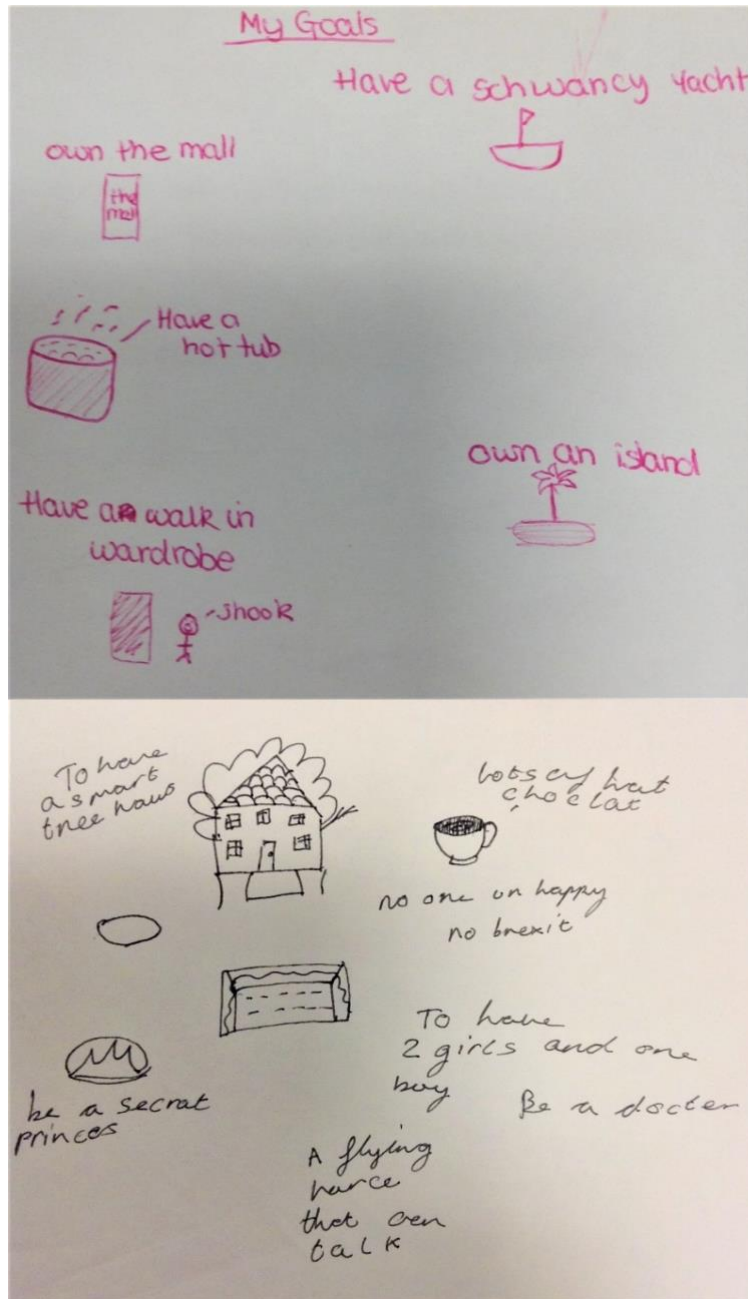 My Goals
Have a schwancy yacht
own the mall
the
mall
Have a
hot tub
own an island
Have a walk in
wardrobe
shook
To have
a smart
tree haus
lots of hot
choclat
no one un happy
no brexit
To have
2 girls and one
boy
Be a docter
be a secrat
princes
A flying
horce
that can
talk